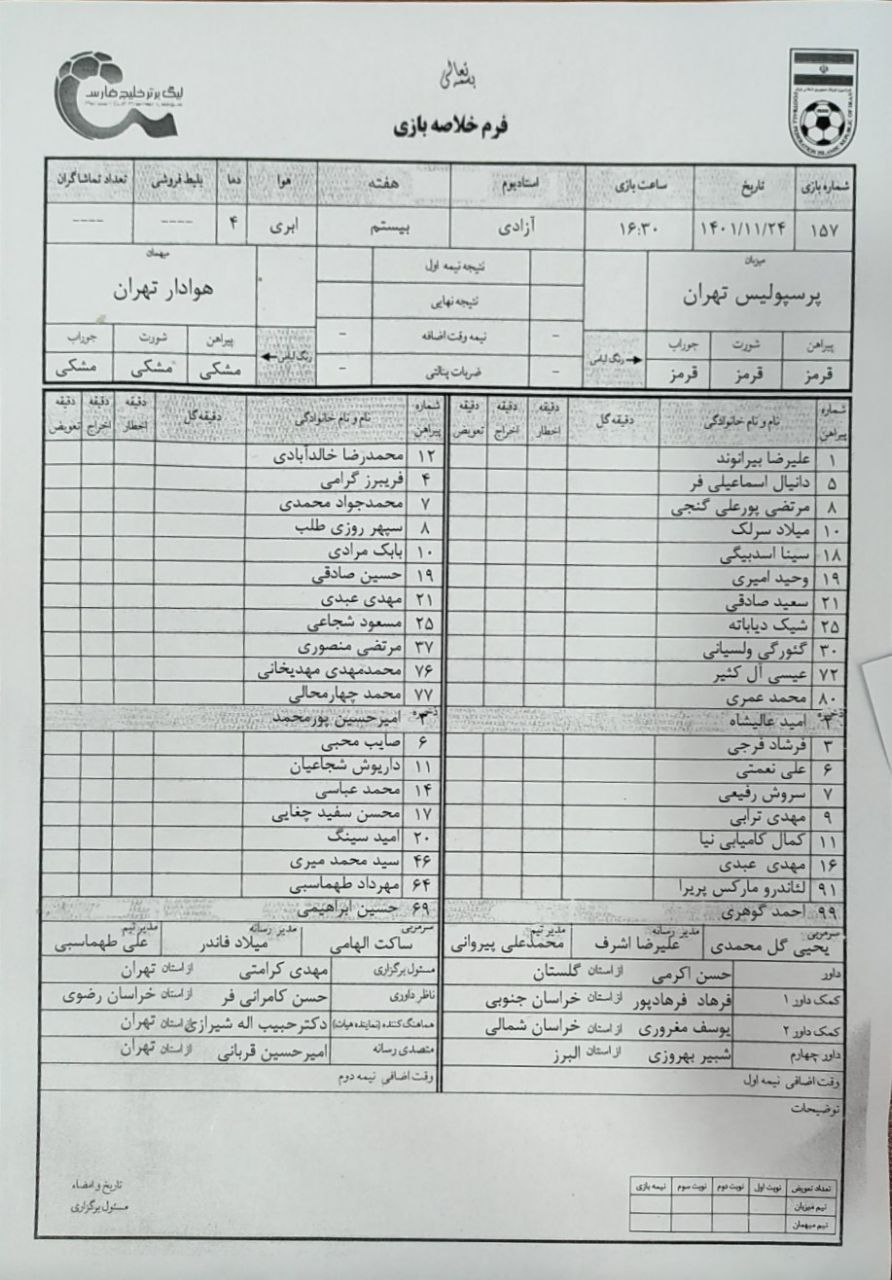 بسمه تعالی
لیگ برتر خلیج فارس
Persian Gulf Premier League
FOOTBALL FEDERATION ISLAMIC REPUBLIC OF IRAN
فرم خلاصه بازی
شماره بازی تاریخ ساعت بازی استادیوم هفته هوا دما بلیط فروشی تعداد تماشاگران
۱۵۷ ۱۴۰۱/۱۱/۲۴ ۱۶:۳۰ آزادی بیستم ابری ۴ ---- ----
میزبان
پرسپولیس تهران
پیراهن شورت جوراب
قرمز قرمز قرمز
رنگ لباس
نتیجه نیمه اول
نتیجه نهایی
- نیمه وقت اضافه -
- ضربات پنالتی -
میهمان
هوادار تهران
رنگ لباس
پیراهن شورت جوراب
مشکی مشکی مشکی
شماره پیراهن نام و نام خانوادگی دقیقه گل دقیقه اخطار دقیقه اخراج دقیقه تعویض
۱ علیرضا بیرانوند
۵ دانیال اسماعیلی فر
۸ مرتضی پورعلی گنجی
۱۰ میلاد سرلک
۱۸ سینا اسدبیگی
۱۹ وحید امیری
۲۱ سعید صادقی
۲۵ شیک دیاباته
۳۰ گئورگی ولسیانی
۷۲ عیسی آل کثیر
۸۰ محمد عمری
ذخیره
۲ امید عالیشاه
۳ فرشاد فرجی
۶ علی نعمتی
۷ سروش رفیعی
۹ مهدی ترابی
۱۱ کمال کامیابی نیا
۱۶ مهدی عبدی
۹۱ لئاندرو مارکس پریرا
۹۹ احمد گوهری
شماره پیراهن نام و نام خانوادگی دقیقه گل دقیقه اخطار دقیقه اخراج دقیقه تعویض
۱۲ محمدرضا خالدآبادی
۴ فریبرز گرامی
۷ محمدجواد محمدی
۸ سپهر روزی طلب
۱۰ بابک مرادی
۱۹ حسین صادقی
۲۱ مهدی عبدی
۲۵ مسعود شجاعی
۳۷ مرتضی منصوری
۷۶ محمدمهدی مهدیخانی
۷۷ محمد چهارمحالی
۳ امیرحسین پورمحمد
۶ صایب محبی
۱۱ داریوش شجاعیان
۱۴ محمد عباسی
۱۷ محسن سفید چغایی
۲۰ امید سینگ
۴۶ سید محمد میری
۶۴ مهرداد طهماسبی
۶۹ حسین ابراهیمی
سرمربی یحیی گل محمدی مدیر رسانه علیرضا اشرف مدیر تیم محمدعلی پیروانی
سرمربی ساکت الهامی مدیر رسانه میلاد فاندر مدیر تیم علی طهماسبی
داور حسن اکرمی از استان گلستان
کمک داور ۱ فرهاد فرهادپور از استان خراسان جنوبی
کمک داور ۲ یوسف مغروری از استان خراسان شمالی
داور چهارم شبیر بهروزی از استان البرز
وقت اضافی نیمه اول
مسئول برگزاری مهدی کرامتی از استان تهران
ناظر داوری حسن کامرانی فر از استان خراسان رضوی
هماهنگ کننده (نماینده هیات) دکترحبیب اله شیرازی از استان تهران
متصدی رسانه امیرحسین قربانی از استان تهران
وقت اضافی نیمه دوم
توضیحات
تعداد تعویض نوبت اول نوبت دوم نوبت سوم نیمه بازی
تیم میزبان
تیم میهمان
تاریخ و امضاء
مسئول برگزاری